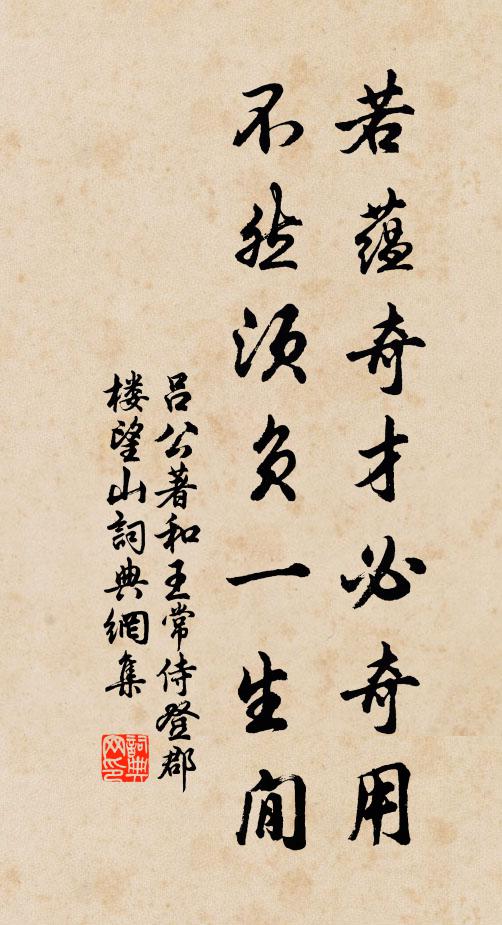 若蕴奇才必奇用
不然须负一生閒
吕公著和王常侍登郡
楼望山詞典網集
詞典
网印